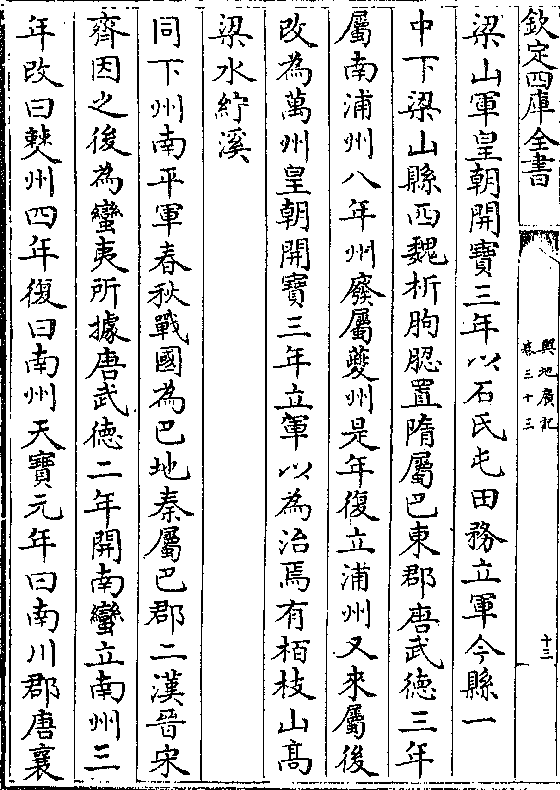 欽定四庫全書
輿地廣記
卷三十三
十三
梁山軍皇朝開寶三年以石氏屯田務立軍今縣一
中下梁山縣西魏析朐䏰置隋屬巴東郡唐武德三年
屬南浦州八年州廢屬夔州是年復立浦州又來屬後
改為萬州皇朝開寶三年立軍以為治焉有栢枝山髙
梁水紵溪
同下州南平軍春秋戰國為巴地秦屬巴郡二漢晉宋
齊因之後為蠻夷所據唐武德二年開南蠻立南州三
年改曰僰州四年復曰南州天寶元年曰南川郡唐襄